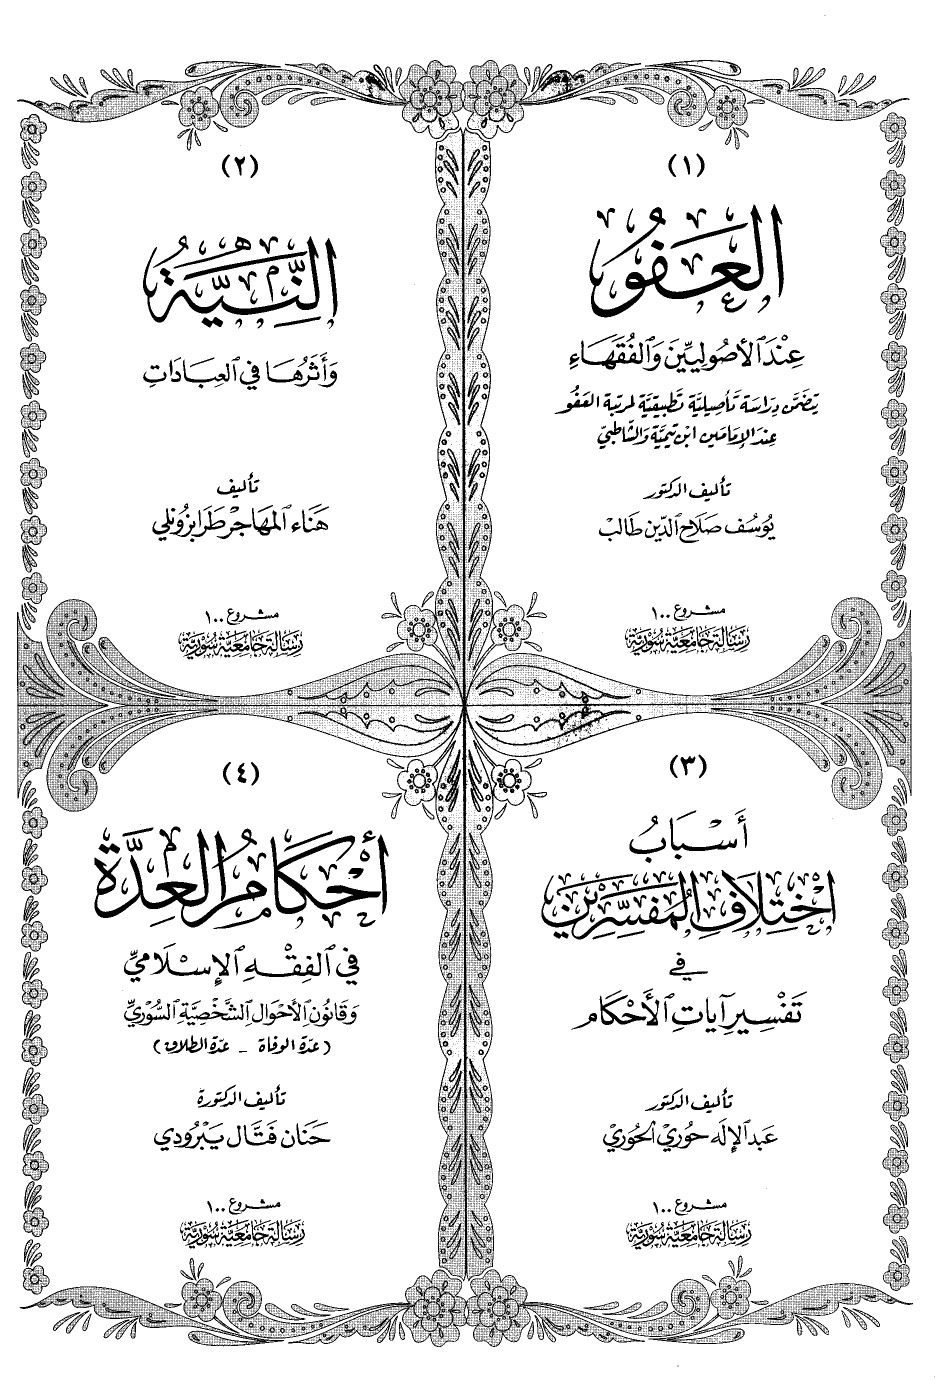 (١)
العَفْوُ
عِنْدَ ٱلأُصُولِيِّينَ وَٱلْفُقَهَاءِ
يتضمَّن دِرَاسَة تَأصِيليَّة تَطبِيقيَّة لمرتبة العَفْو
عِندَ الإمَامَين ابْن تيميَّة وَالشَّاطبيّ
تأليف الدكتور
يُوسُف صَلَاح ٱلدِّين طَالبْ
مشروع ١٠٠
رِسَالَة جَامِعيَّة سُوْرِيَّة
(٢)
النِّيَّةُ
وَأَثَرُهَا في ٱلعِبَادَاتِ
تأليف
هَنَاء ٱلمهَاجِر طَرابزُونلي
مشروع ١٠٠
رِسَالَة جَامِعيَّة سُوْرِيَّة
(٣)
أَسْبَابُ
ٱخْتِلَافِ المُفَسِّرِينَ
في
تَفْسِيرِ آيَاتِ ٱلأَحْكَام
تأليف الدكتور
عَبد ٱلإِلَه حُوري الحُوري
مشروع ١٠٠
رِسَالَة جَامِعيَّة سُوْرِيَّة
(٤)
أَحْكَامُ العِدَّةِ
في ٱلفِقْهِ ٱلإِسْلَاميِّ
وَقَانُونِ ٱلأَحْوَالِ ٱلشَّخْصِيَّةِ ٱلسُّوْريِّ
(عدَّة الوفاة - عدَّة الطلاق)
تأليف الدكتورة
حَنَان فَتَّال يَبْرُودي
مشروع ١٠٠
رِسَالَة جَامِعيَّة سُوْرِيَّة